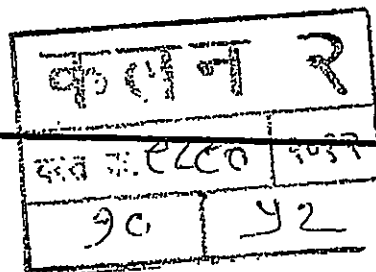 कलन २
दस्त क्र. ९८८०
१० ५२